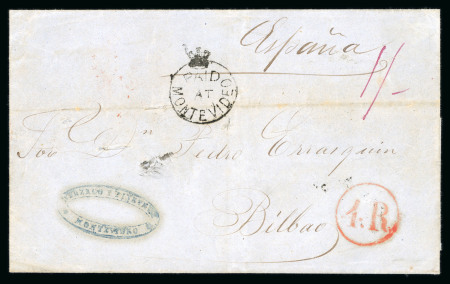 España
1/-
PAID
AT
MONTEVIDEO
Sor Dn Pedro
Bilbao
4.R.
MONTEVIDEO